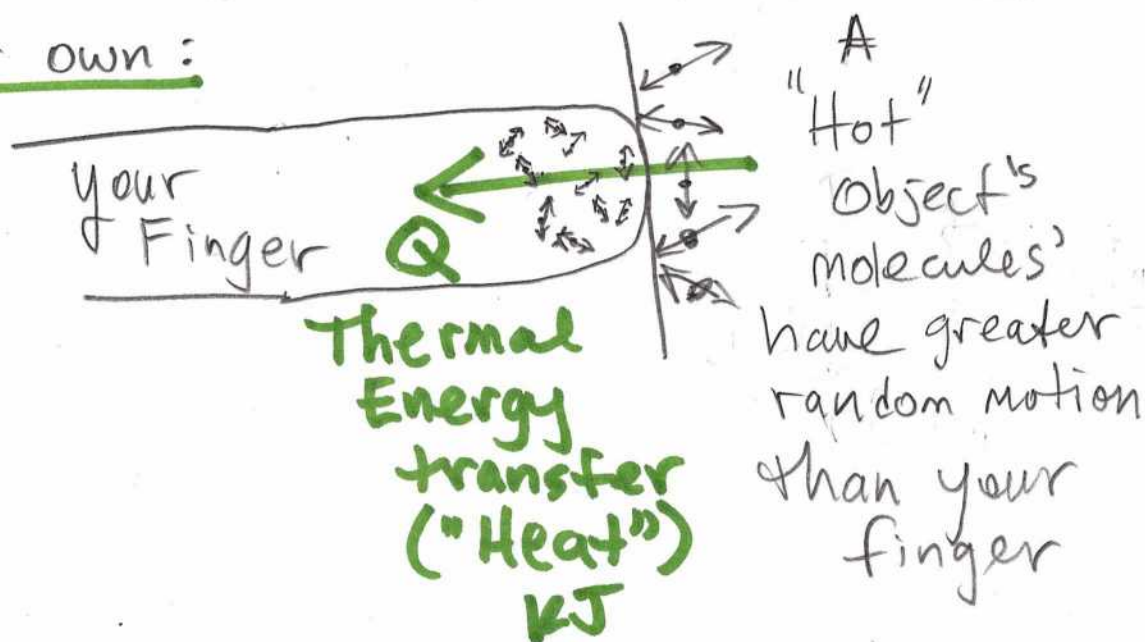 own :
your
Finger
Q
Thermal
Energy
transfer
("Heat")
kJ
A
"Hot"
Object's
molecules'
have greater
random motion
than your
finger